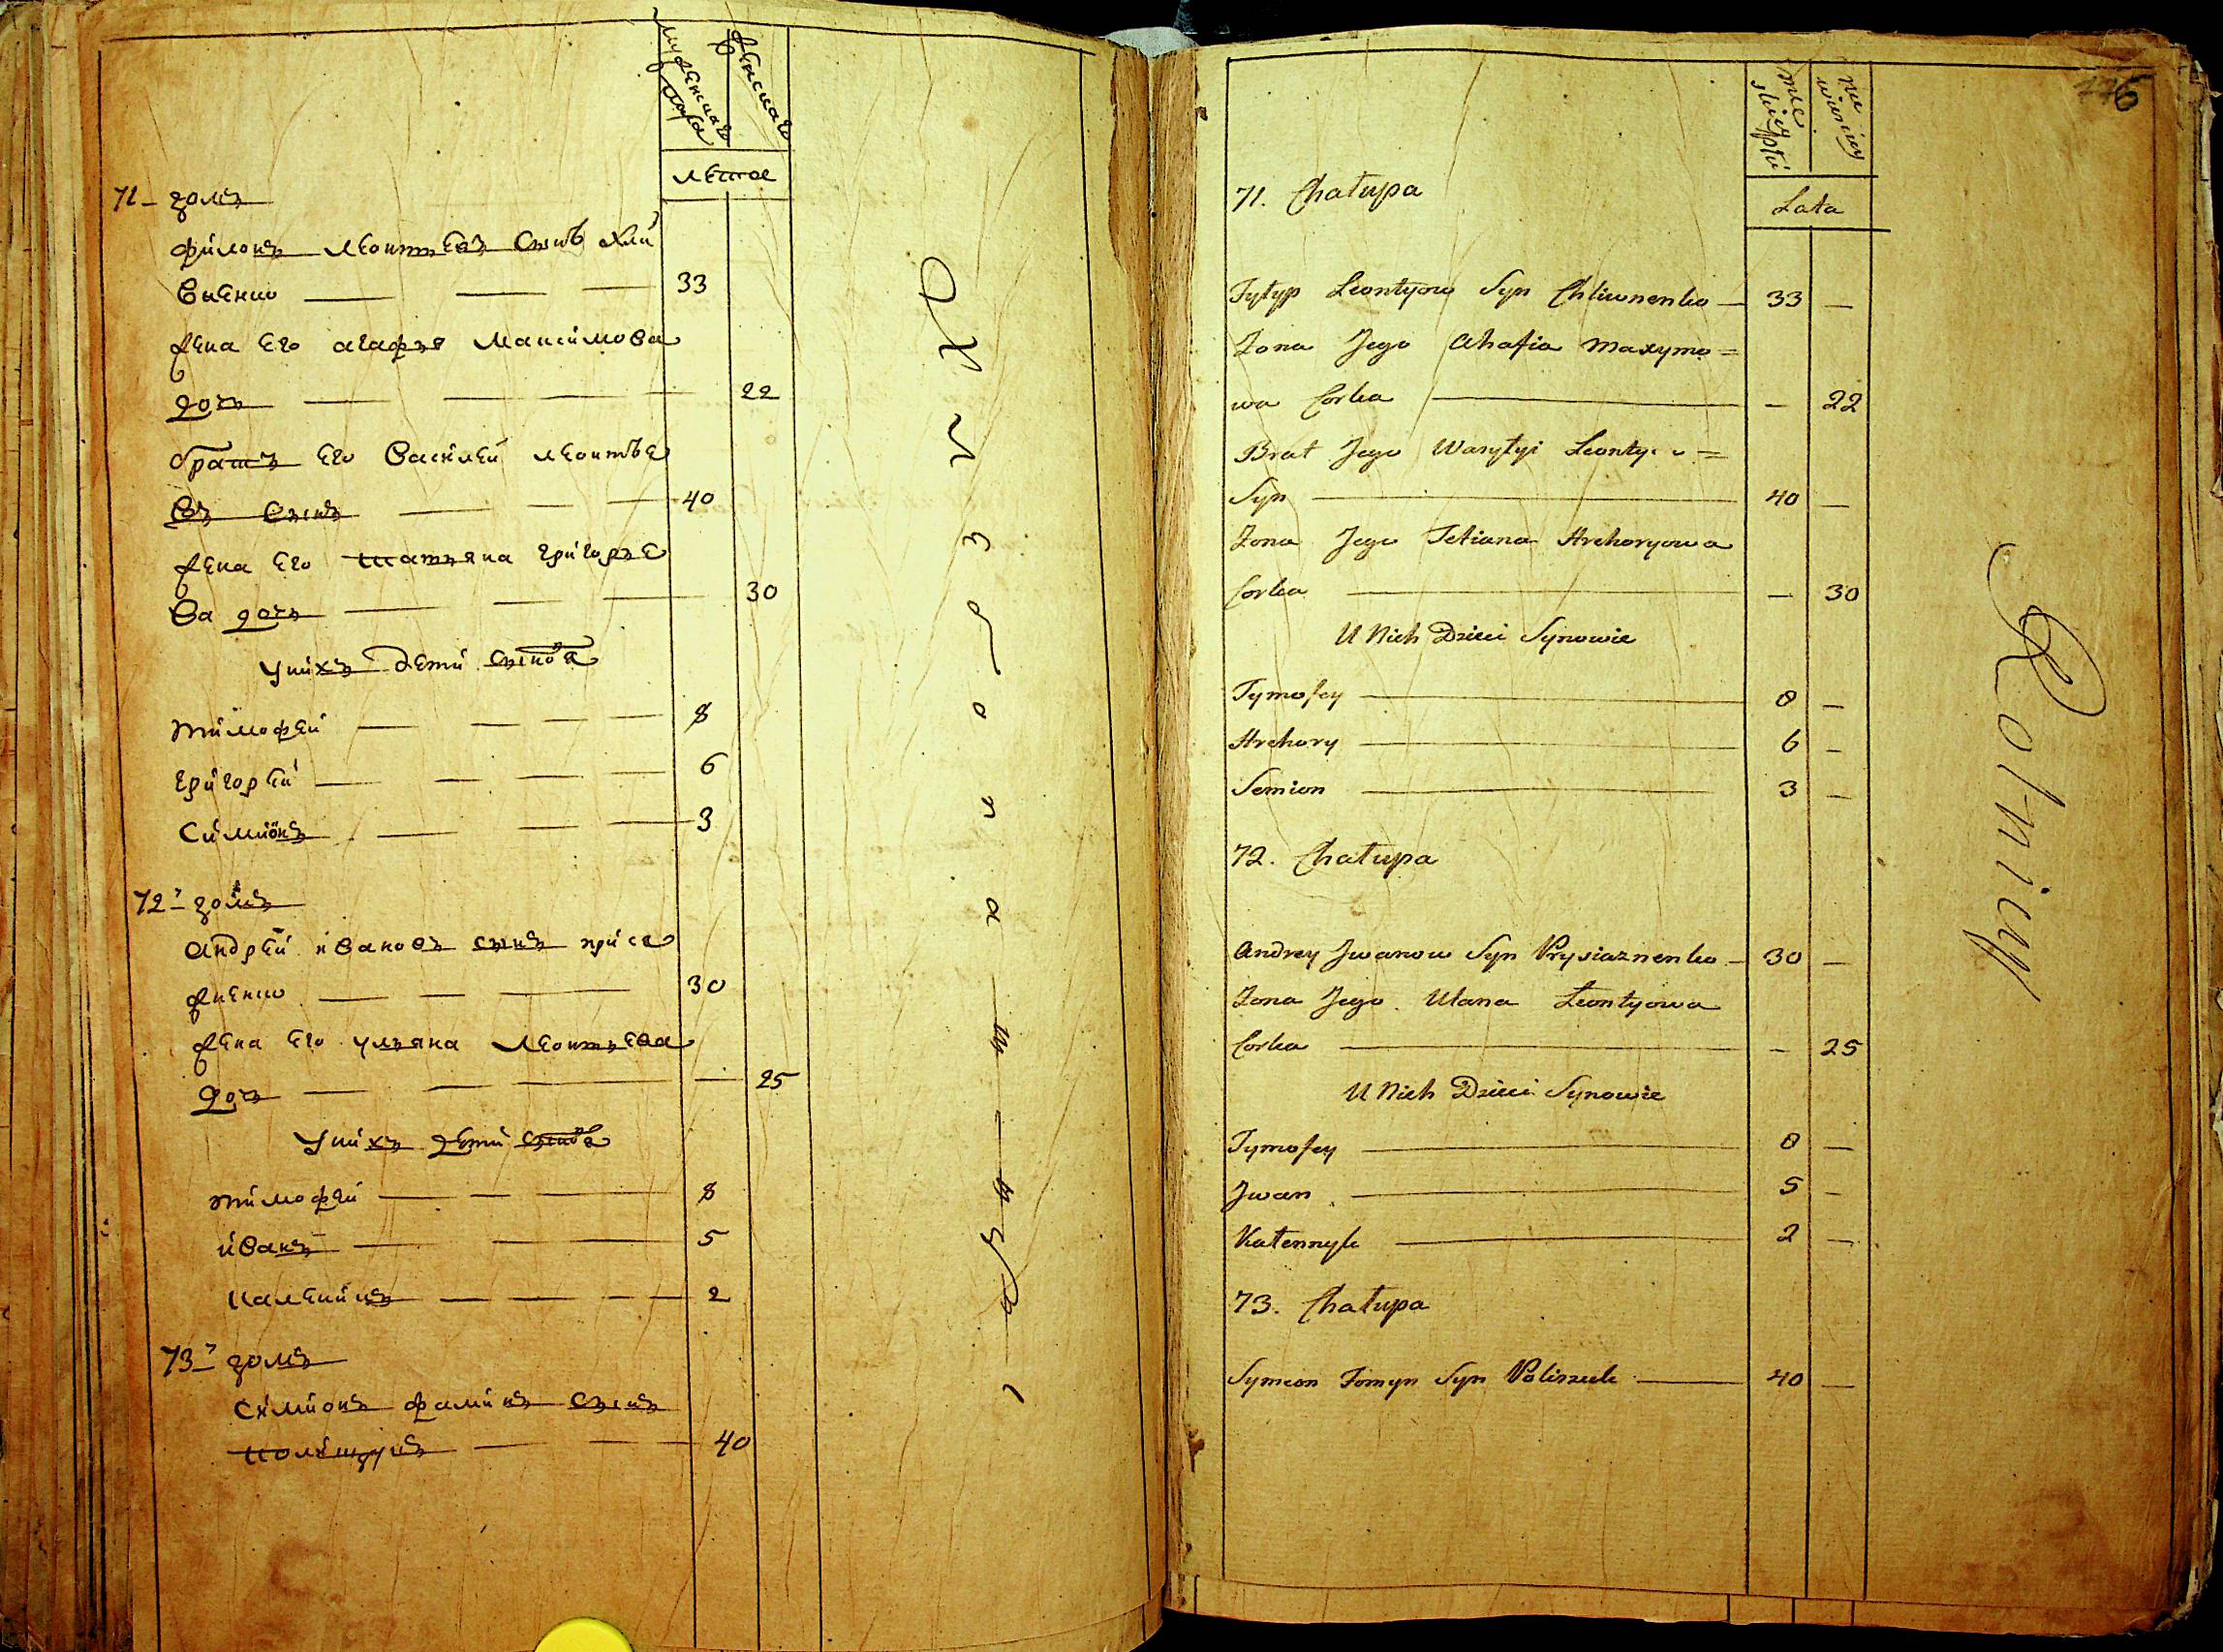 мужеска пола
женска
летое
71 домъ
филонъ леонтьевъ сынъ хли
внѣнко 33
жена его агафья максимова
дочь 22
братъ его василей леонтье
въ сынъ 40
жена его татьяна григорье
ва дочь 30
унихъ дети сынова
тимофей 8
григорѣй 6
симионъ 3
72 домъ
андрѣй ивановъ сынъ прися
жненко 30
жена его ульяна леонтьева
дочь 25
унихъ дети сынова
тимофей 8
иванъ 5
калениикъ 2
73 домъ
симионъ фаминъ сынъ
полищукъ 40
6
męskiey płci
Lata
71. Chałupa
Leontyow Syn Chliwnenko 33 —
Zona Jego Ahafia Maxymo=
wa Corka — 22
Brat Jego Wasylyi Leonty
Syn 40 —
Zona Jego Tetiana Hrehoryowa
Corka — 30
U Nich Dzieci Synowie
Tymofey 8 —
Hrehory 6 —
Semion 3 —
72. Chałupa
Andrey Jwanow Syn Prysiaznenko 30 —
Zona Jego Ulana Leontyowa
Corka — 25
U Nich Dzieci Synowie
Tymofey 8 —
Jwan 5 —
Kalennyk 2 —
73. Chałupa
Symeon Fomyn Syn Poliszuk 40 —
Rolnicy